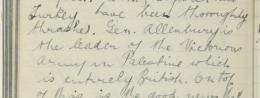 Turkey have been thoroughly
thrashed. Gen. Allenbury is
the leader of the Victorious
Army in Palestine which
is entirely British. On top
of this is the good news that